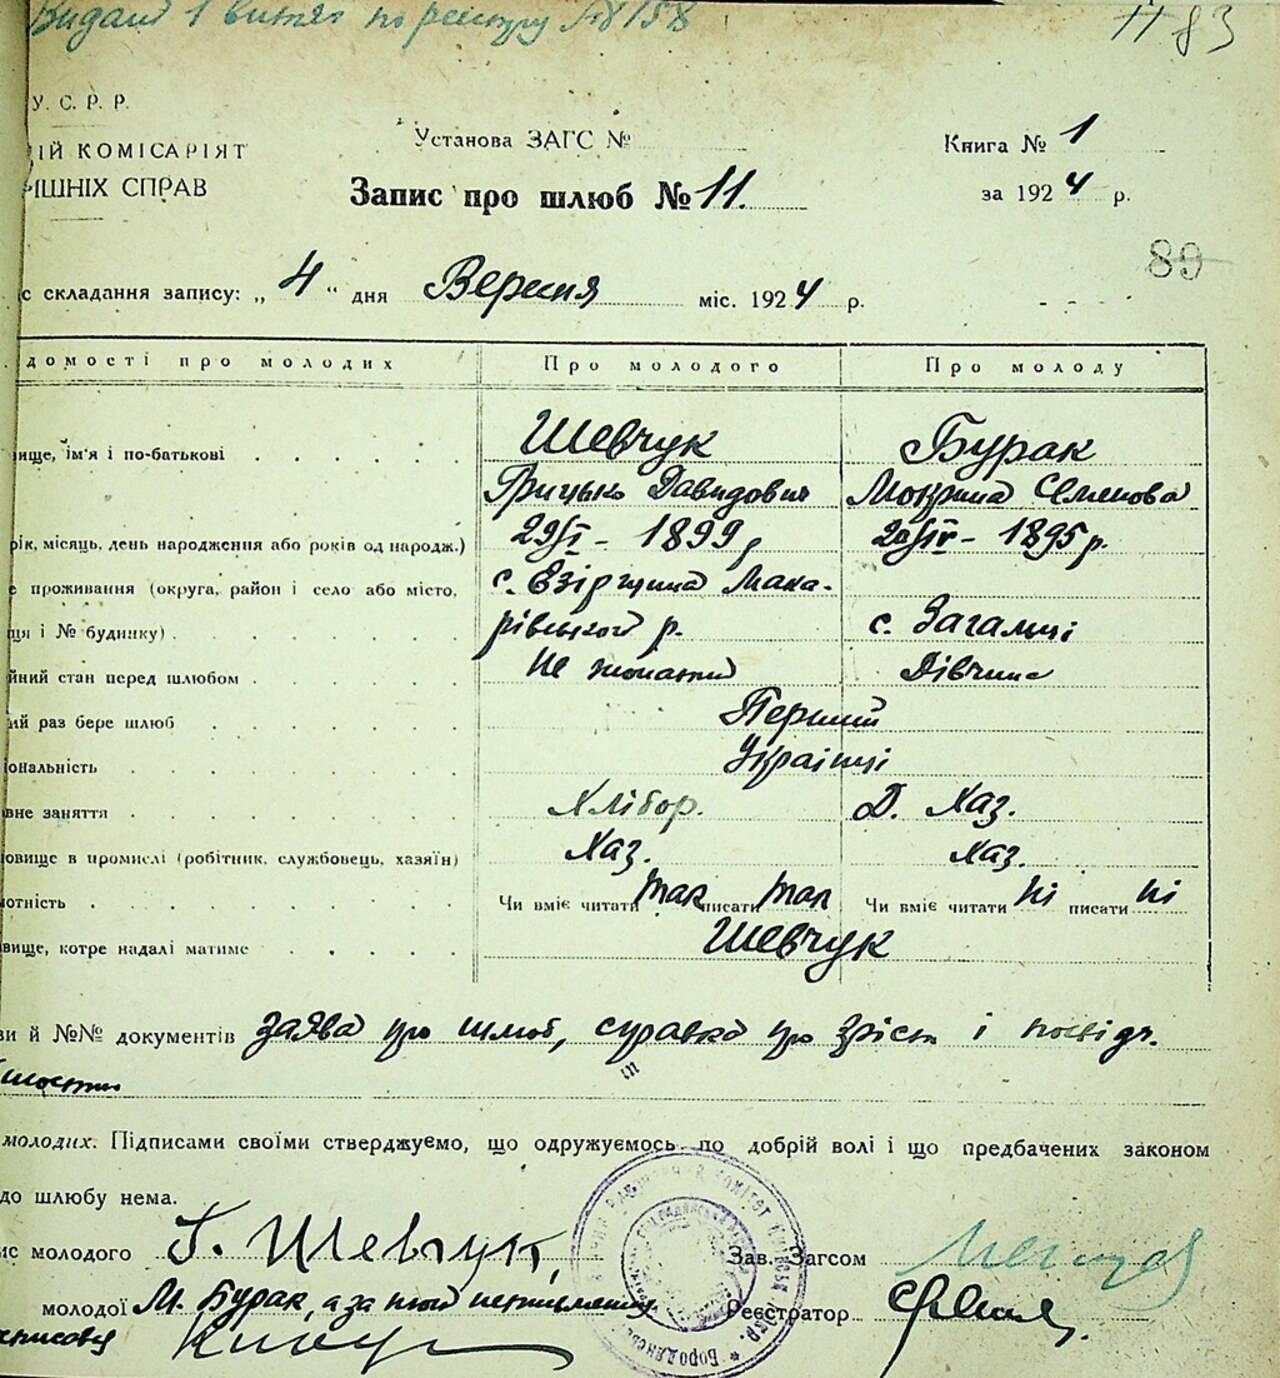 Видано 1 витяг по реєстру № 8158
№ 83
У. С. Р. Р.
ІЙ КОМІСАРІЯТ
РІШНІХ СПРАВ
Установа ЗАГС №
Книга № 1
Запис про шлюб № 11.
за 1924 р.
89
с складання запису: „ 4 “ дня Вересня міс. 1924 р.
домості про молодих
Про молодого
Про молоду
вище, ім'я і по-батькові
Шевчук
Бурак
Грицько Давидович
Мокрина Семенова
рік, місяць, день народження або років од народж.)
29/I - 1899 р
20/IV - 1895 р.
е проживання (округа, район і село або місто,
с. Езірщина Мака-
ця і № будинку)
рівського р.
с. Загальці
йний стан перед шлюбом
Не жонатий
Дівчина
ий раз бере шлюб
Перший
іональність
Українці
вне заняття
Хлібор.
Д. Хаз.
овище в промислі (робітник, службовець, хазяїн)
Хаз.
Хаз.
отність
Чи вміє читати так писати так
Чи вміє читати ні писати ні
вище, котре надалі матиме
Шевчук
ви й №№ документів заява про шлюб, справка про зріст і посвідч.
молодих. Підписами своїми стверджуємо, що одружуємось по добрій волі і що предбачених законом
до шлюбу нема.
ис молодого Г. Шевчук,
Зав. Загсом
молодої М. Бурак, а за неї неписьменну
Реєстратор